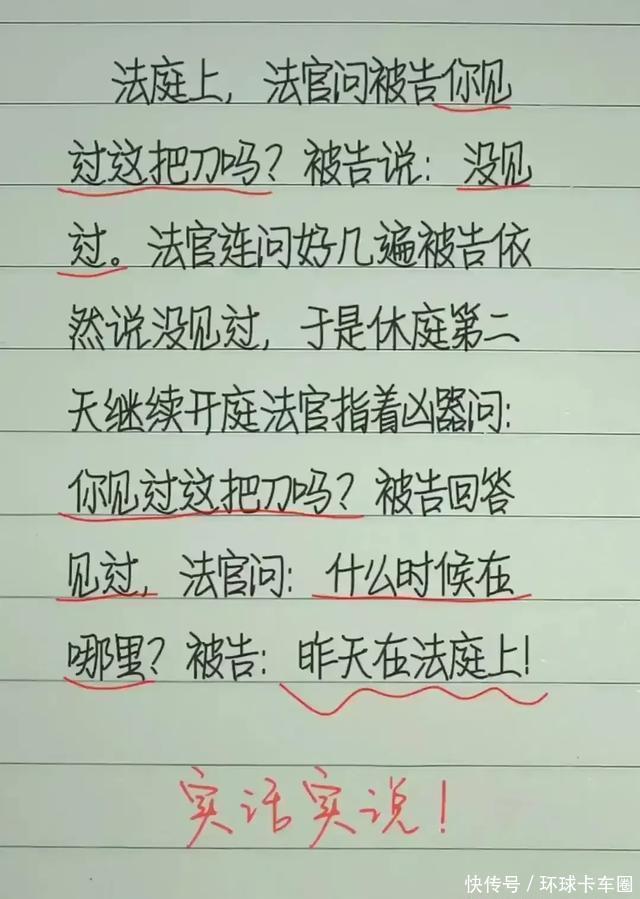 法庭上，法官问被告你见
过这把刀吗？被告说：没见
过。法官连问好几遍被告依
然说没见过，于是休庭第二
天继续开庭法官指着凶器问：
你见过这把刀吗？被告回答
见过，法官问：什么时候在
哪里？被告：昨天在法庭上！
实话实说！
快传号／环球卡车圈